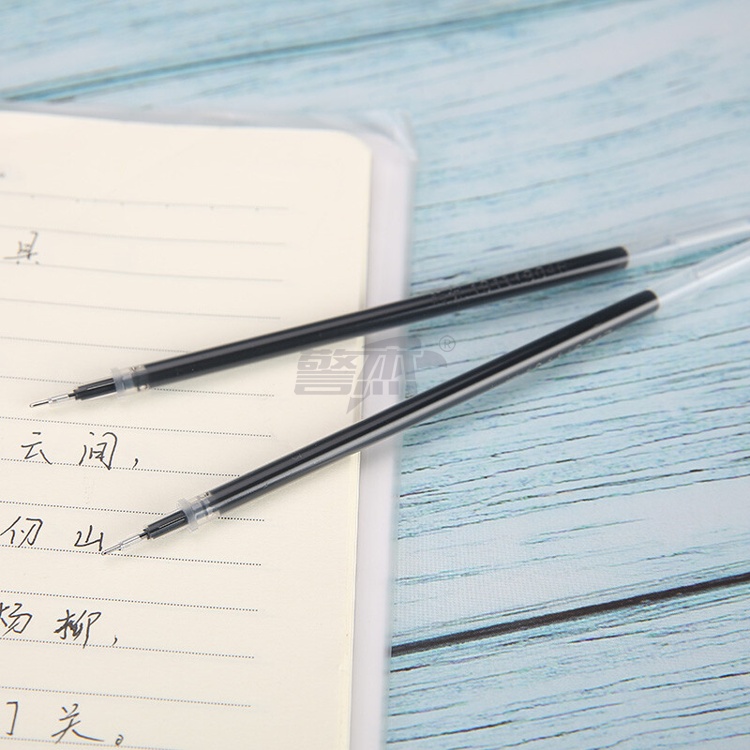 具
云间，
仞山
杨柳，
门关。
警杰®